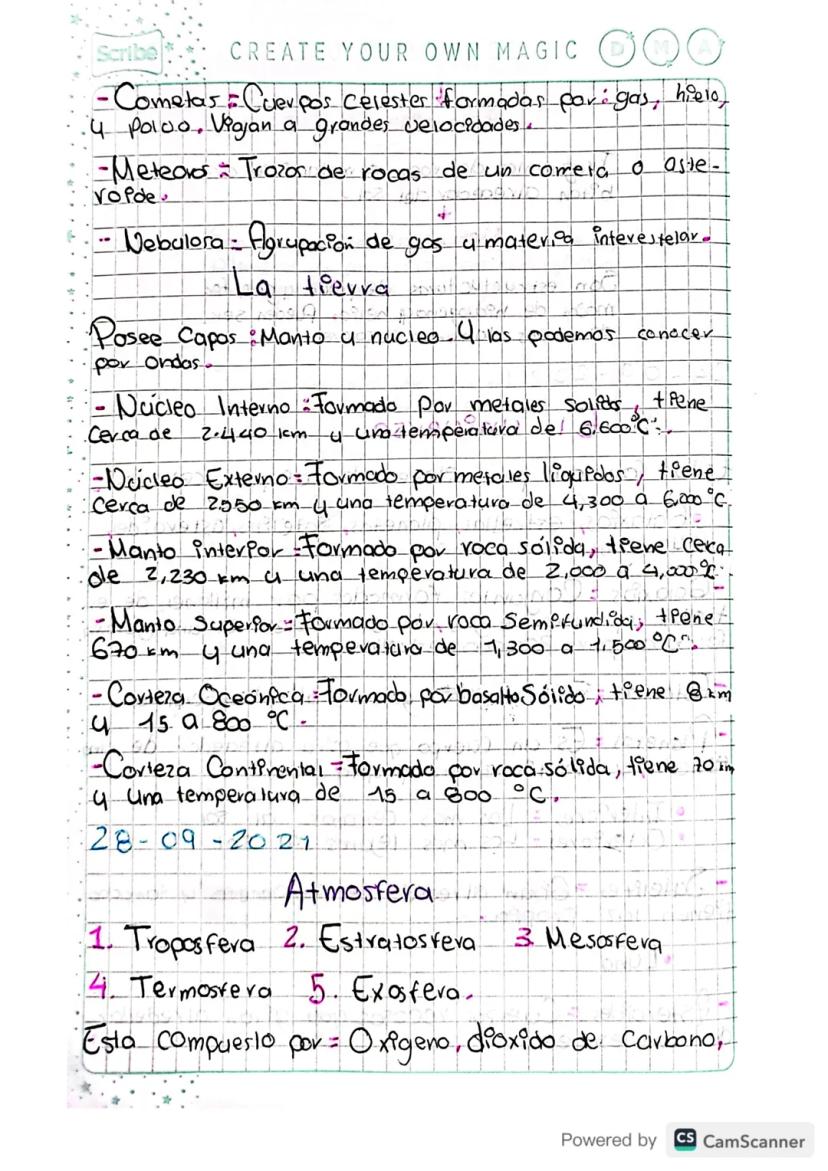 Scribe CREATE YOUR OWN MAGIC D M A
- Cometas = Cuerpos celester formadas por: gas, hielo,
y polvo. Viajan a grandes velocidades.
- Meteoros = Trozos de rocas de un cometa o aste-
roide.
- Nebulosa = Agrupación de gas y materia interestelar.
La tierra
Posee Capas: Manto y nucleo. Y las podemos conocer
por ondas.
- Núcleo Interno: Formado por metales solidos, tiene
cerca de 2.440 km y una temperatura de 6.600°C.
- Núcleo Externo = Formado por metales liquidos, tiene
cerca de km y una temperatura de 4,300 a 6,000 °C.
- Manto interior = Formado por roca sólida, tiene cerca
de 2,230 km y una temperatura de 2,000 a 4,000°C.
- Manto Superior = Formado por roca Semifundida; tiene
670 km y una temperatura de 1,300 a 1.500 °C.
- Corteza Oceánica = Formado por basalto Sólido; tiene 8 km
y 15 a 800 °C.
- Corteza Continental = Formado por roca sólida, tiene 70 km
y una temperatura de 15 a 800 °C.
28-09-2021
Atmosfera
1. Troposfera 2. Estratosfera 3 Mesosfera
4. Termosfera 5. Exosfera.
Esta compuesto por = Oxigeno, dióxido de carbono,
Powered by CS CamScanner